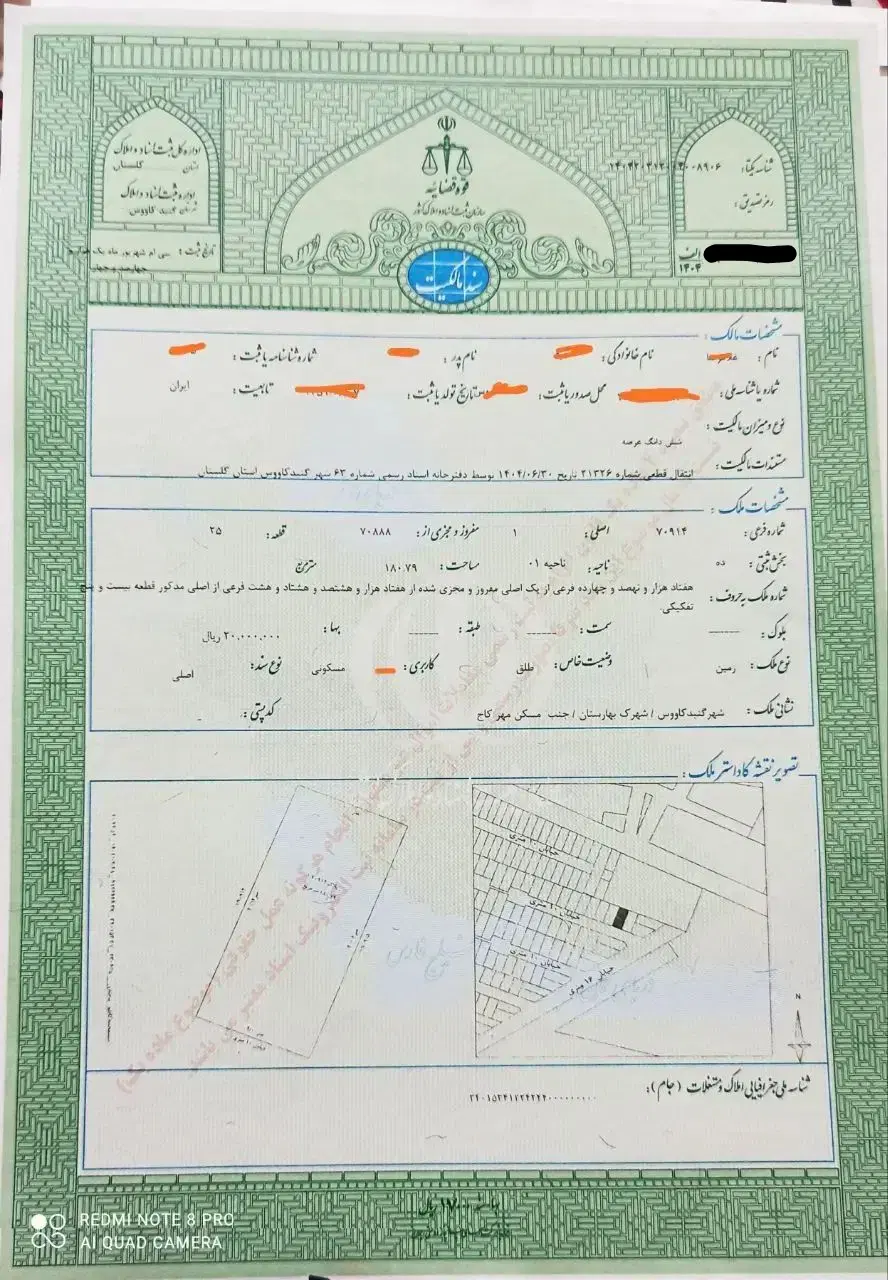 قوه قضائیه
سازمان ثبت اسناد و املاک کشور
سند مالکیت
شناسه یکتا:
رمز تصدیق:
الف
۱۴۰۴
اداره کل ثبت اسناد و املاک
استان گلستان
اداره ثبت اسناد و املاک
شهرستان گنبد کاووس
تاریخ ثبت: سی ام شهریور ماه یک هزار و
چهارصد و چهار
مشخصات مالک:
نام: نام خانوادگی: نام پدر: شماره شناسنامه یا ثبت:
شماره یا شناسه ملی: محل صدور یا ثبت: تاریخ تولد یا ثبت: تابعیت: ایران
نوع و میزان مالکیت:
شش دانگ عرصه
مستندات مالکیت:
انتقال قطعی شماره ۲۱۳۲۶ تاریخ ۱۴۰۴/۰۶/۳۰ توسط دفترخانه اسناد رسمی شماره ۶۳ شهر گنبدکاووس استان گلستان
مشخصات ملک:
شماره فرعی: ۷۰۹۱۴ اصلی: ۱ مفروز و مجزی از: ۷۰۸۸۸ قطعه: ۲۵
بخش ثبتی: ده ناحیه: ناحیه ۰۱ مساحت: ۱۸۰.۷۹ مترمربع
شماره ملک به حروف: هفتاد هزار و نهصد و چهارده فرعی از یک اصلی مفروز و مجزی شده از هفتاد هزار و هشتصد و هشتاد و هشت فرعی از اصلی مذکور قطعه بیست و پنج
تفکیکی.
بلوک: ------ سمت: ------ طبقه: ------ بها: ۲۰,۰۰۰,۰۰۰ ریال
نوع ملک: زمین وضعیت خاص: طلق کاربری: مسکونی نوع سند: اصلی
نشانی ملک: شهرگنبدکاووس / شهرک بهارستان / جنب مسکن مهر کاج کدپستی:
تصویر نقشه کاداستر ملک:
خیابان ۱۰ متری
خیابان ۱۰ متری
خیابان ۱۰ متری
خیابان ۱۶ متری
N
خلیج فارس
شناسه ملی جغرافیایی املاک و مستغلات (جام):
REDMI NOTE 8 PRO
AI QUAD CAMERA